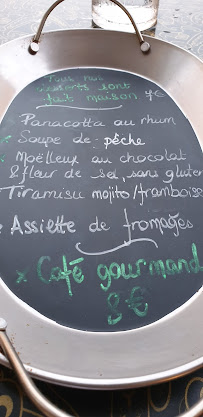 Tous nos
desserts sont
fait maison 7€
Panacotta au rhum
Soupe de pêche
Moëlleux au chocolat
&fleur de sel, sans gluten
Tiramisu mojito/framboise
Assiette de fromages
x Café gourmand
8€